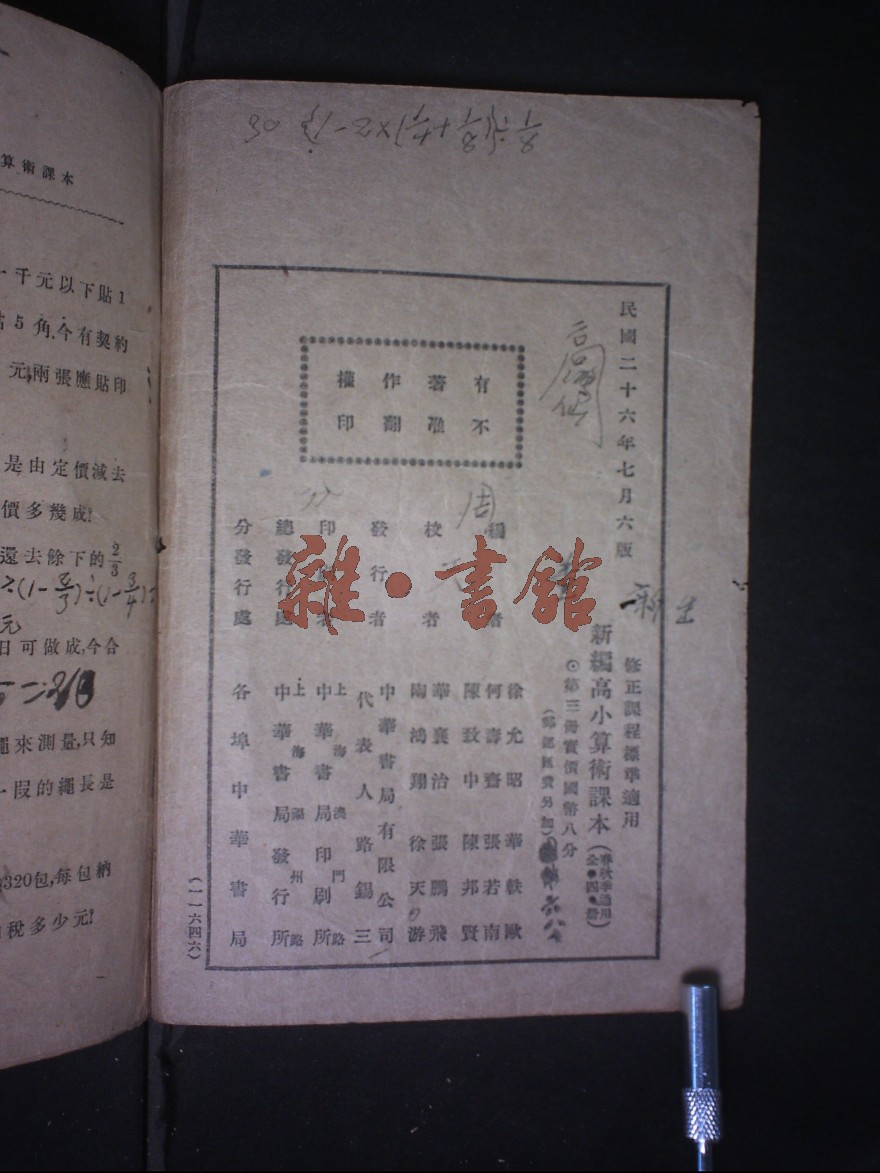 民國二十六年七月六版
有著作權
不准翻印
修正課程標準適用
新編高小算術課本(春秋季適用 全四冊)
◎第三冊實價國幣八分
(郵運匯費另加)
編者
徐允昭 華軼歐
何壽齋 張若南
陳致中 陳邦賢
校者
華襄治 張鵬飛
陶鴻翔 徐天游
發行者
中華書局有限公司
代表人 路錫三
印者
上海澳門路
中華書局印刷所
總發行處
上海福州路
中華書局發行所
分發行處
各埠中華書局
(一一六四六)
雜·書館
周
算術課本
一千元以下貼1
5角.今有契約
元,兩張應貼印
是由定價減去
價多幾成?
還去餘下的2/3
元
日可做成,今合
來測量,只知
一段的繩長是
320包,每包納
稅多少元?